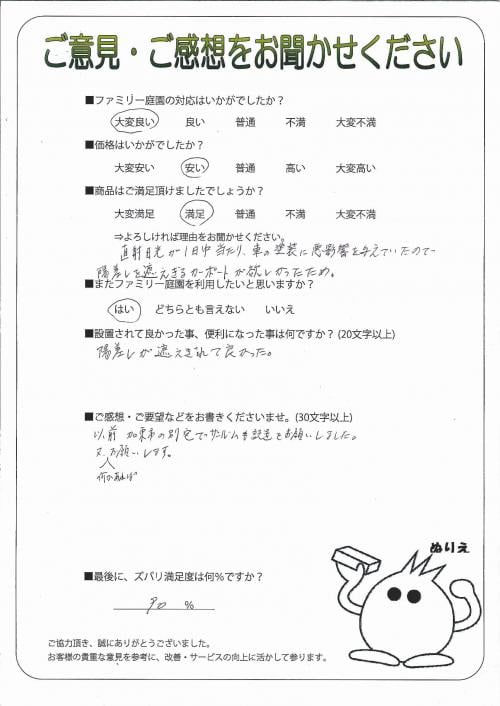 ご意見・ご感想をお聞かせください
■ファミリー庭園の対応はいかがでしたか？
大変良い 良い 普通 不満 大変不満
■価格はいかがでしたか？
大変安い 安い 普通 高い 大変高い
■商品はご満足頂けましたでしょうか？
大変満足 満足 普通 不満 大変不満
⇒よろしければ理由をお聞かせください。
直射日光が1日中当たり、車の塗装に悪影響を与えていたので
陽差しを遮えぎるカーポートが欲しかったため。
■またファミリー庭園を利用したいと思いますか？
はい どちらとも言えない いいえ
■設置されて良かった事、便利になった事は何ですか？(20文字以上)
陽差しが遮えぎれて良かった。
■ご感想・ご要望などをお書きくださいませ。(30文字以上)
以前 加東市の別宅でサンルームも設置をお願いしました。
又、お願いします。
何かあれば
ぬりえ
■最後に、ズバリ満足度は何％ですか？
90 %
ご協力頂き、誠にありがとうございました。
お客様の貴重な意見を参考に、改善・サービスの向上に活かして参ります。